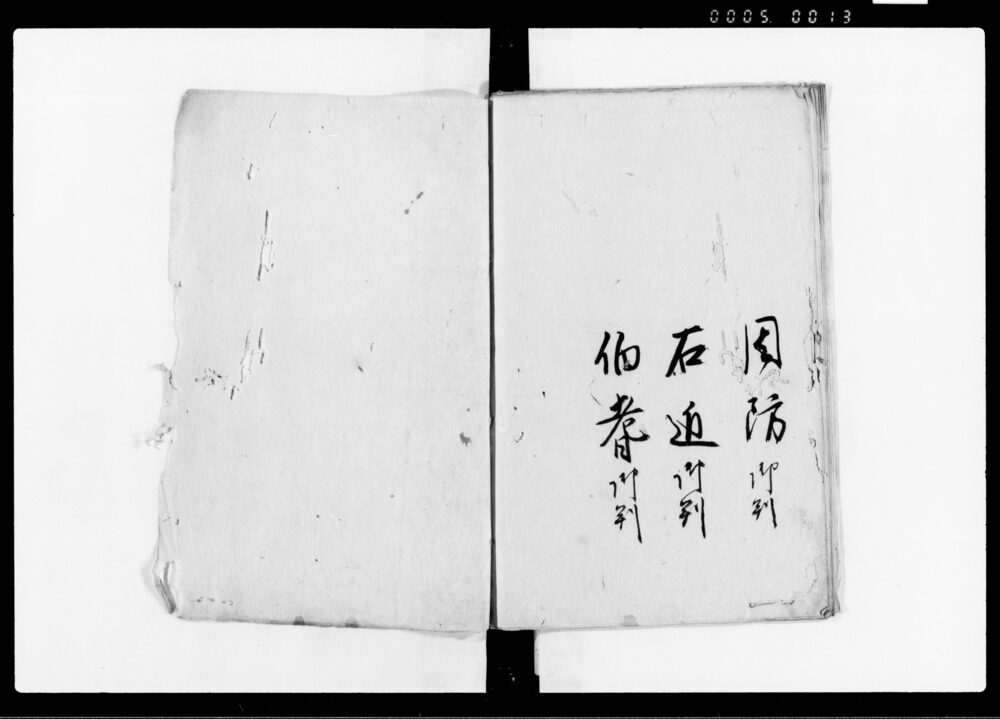 0005. 0013
周防御判
右近御判
伯耆御判